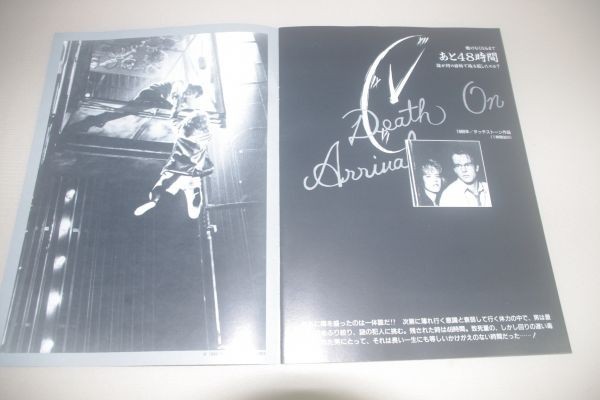 あと48時間
誰が何の目的で毒を盛したのか?
Death On
Arrival
1988年/タッチストーン作品
に毒を盛ったのは一体誰だ!! 次第に薄れ行く意識と衰弱して行く体力の中で、男は最
ふり絞り、謎の犯人に挑む。残された時は48時間。致死量の、しかし回りの遅い毒
た男にとって、それは長い一生にも等しいかけがえのない時間だった……!